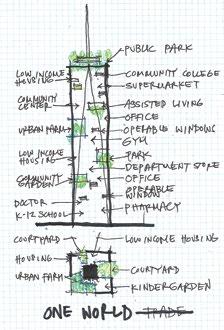 PUBLIC PARK
LOW INCOME HOUSING
COMMUNITY CENTER
URBAN FARM
LOW INCOME HOUSING
COMMUNITY GARDEN
DOCTOR
K-12 SCHOOL
COMMUNITY COLLEGE
SUPERMARKET
ASSISTED LIVING
OFFICE
OPERABLE WINDOWS
GYM
PARK
DEPARTMENT STORE
OFFICE
OPERABLE WINDOW
PHARMACY
COURTYARD
LOW INCOME HOUSING
HOUSING
URBAN FARM
COURTYARD
KINDERGARDEN
ONE WORLD TRADE